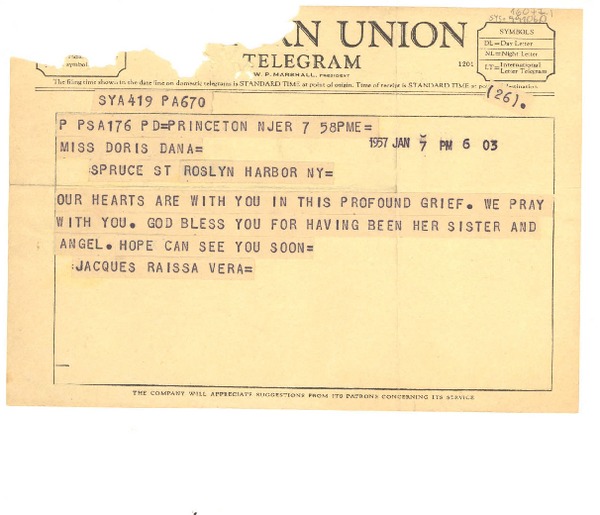 AN UNION
TELEGRAM
1201
W. P. MARSHALL, PRESIDENT
symbol.
SYMBOLS
DL=Day Letter
NL=Night Letter
LT=International Letter Telegram
The filing time shown in the date line on domestic telegrams is STANDARD TIME at point of origin. Time of receipt is STANDARD TIME at point of destination
(26).
SYA419 PA670
P PSA176 PD=PRINCETON NJER 7 58PME=
1957 JAN 7 PM 6 03
MISS DORIS DANA=
SPRUCE ST ROSLYN HARBOR NY=
OUR HEARTS ARE WITH YOU IN THIS PROFOUND GRIEF. WE PRAY
WITH YOU. GOD BLESS YOU FOR HAVING BEEN HER SISTER AND
ANGEL. HOPE CAN SEE YOU SOON=
JACQUES RAISSA VERA=
THE COMPANY WILL APPRECIATE SUGGESTIONS FROM ITS PATRONS CONCERNING ITS SERVICE